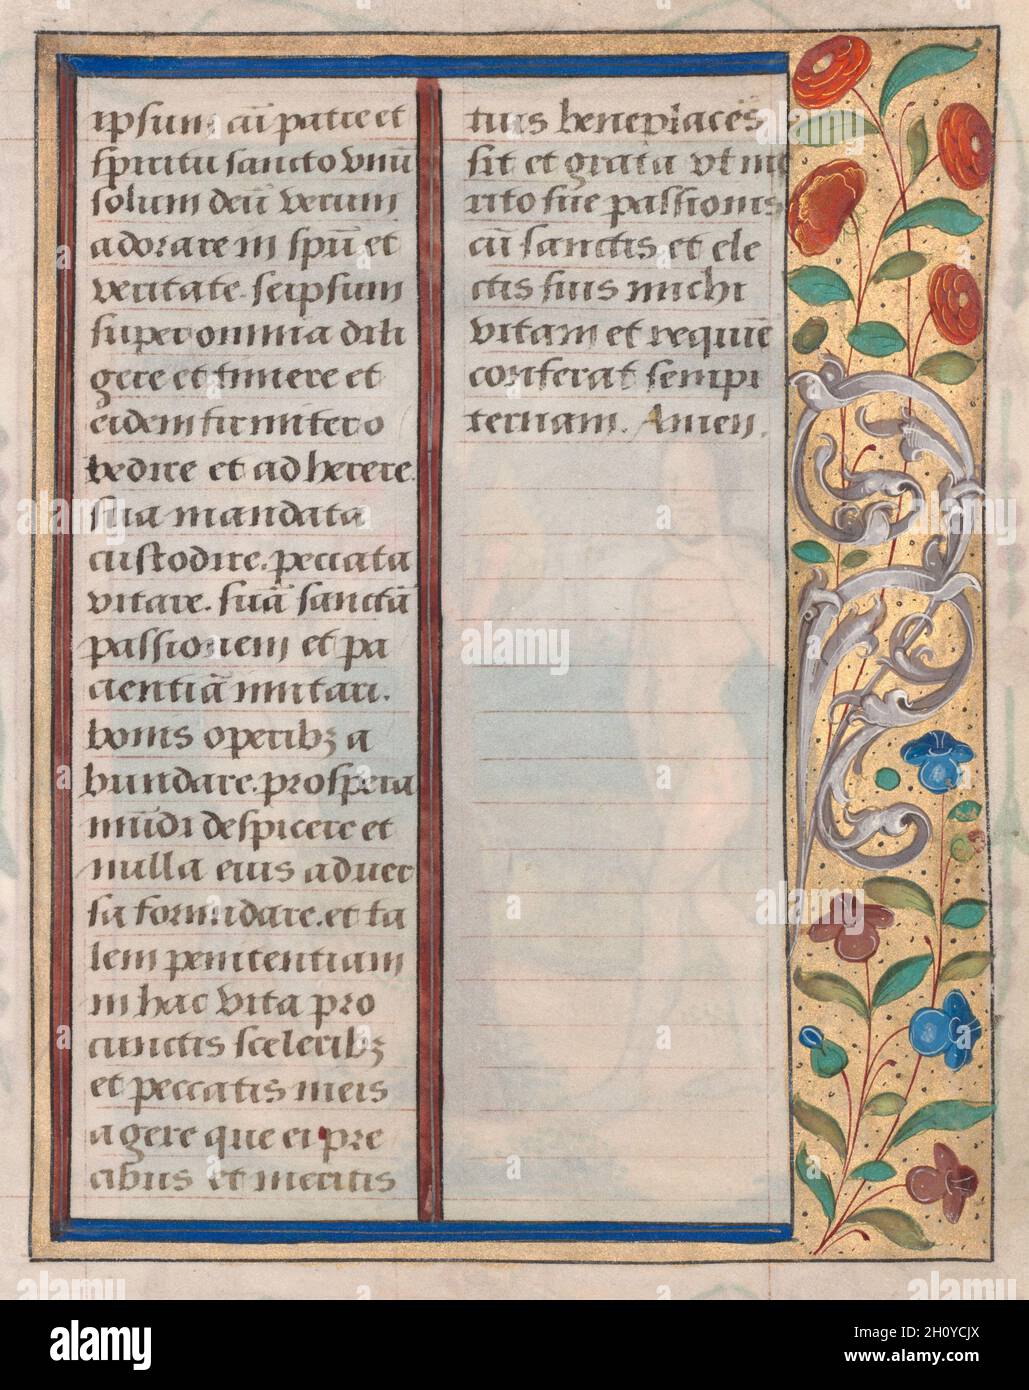 ipsum cũ patre et
spiritu sancto vnũ
solum deũ verum
adorare in spũ et
veritate. seipsum
super omnia dili
gere et timere et
eidem firmiter o
bedire et ad herere.
sua mandata
custodire. peccata
vitare. suã sanctã
passionem et pa
cientiã imitari.
bonis operibꝫ a
bundare. prospera
mũdi despicere et
nulla eius aduer
sa formidare. et ta
lem penitentiam
in hac vita pro
cunctis sceleribꝫ
et peccatis meis
agere que ei pre
cibus et meritis
tuis beneplacẽs
sit et grata vt me
rito sue passionis
cũ sanctis et ele
ctis suis michi
vitam et requiẽ
conferat sempi
ternam. Amen.
alamy
Image ID: 2H0YCJX
www.alamy.com